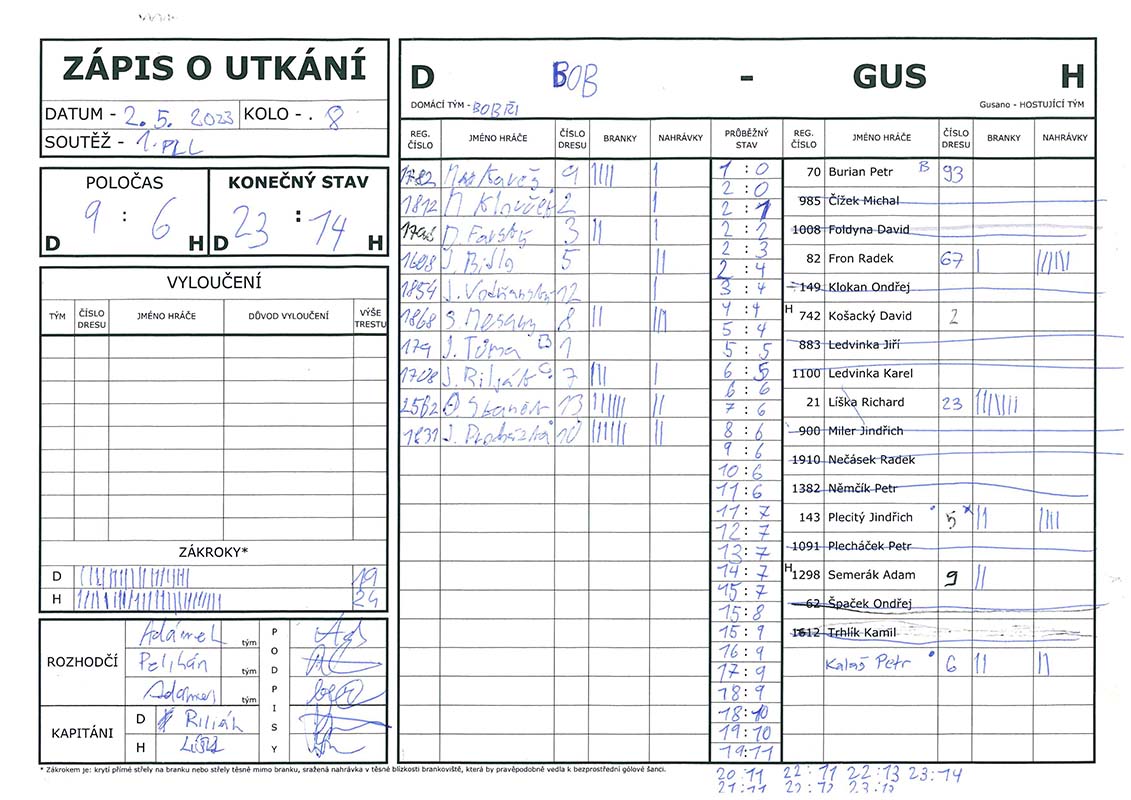 ZÁPIS O UTKÁNÍ
DATUM - 2.5. 2023 KOLO - . 8
SOUTĚŽ - 1. PLL
POLOČAS
9 : 6
D H
KONEČNÝ STAV
23 : 14
D H
VYLOUČENÍ
TÝM ČÍSLO DRESU JMÉNO HRÁČE DŮVOD VYLOUČENÍ VÝŠE TRESTU
ZÁKROKY*
D 19
H 24
ROZHODČÍ
Adámek tým
Pelikán tým
Adámek tým
PODPISY
KAPITÁNI
D Rilják
H
D BOB - GUS H
DOMÁCÍ TÝM - BOBŘI Gusano - HOSTUJÍCÍ TÝM
REG. ČÍSLO JMÉNO HRÁČE ČÍSLO DRESU BRANKY NAHRÁVKY PRŮBĚŽNÝ STAV REG. ČÍSLO JMÉNO HRÁČE ČÍSLO DRESU BRANKY NAHRÁVKY
1782 9 IIII I
1812 2 I
3 II I
1608 J. Bidlo 5 II
1854 12 I
1868 8 II III
179 J. Tůma B 1
1708 J. Riljak C 7 III I
2562 13 IIIIII II
1831 J. Procházka 10 IIIIII II
1 : 0
2 : 0
2 : 1
2 : 2
2 : 3
2 : 4
3 : 4
4 : 4
5 : 4
5 : 5
6 : 5
6 : 6
7 : 6
8 : 6
9 : 6
10 : 6
11 : 6
11 : 7
12 : 7
13 : 7
14 : 7
15 : 7
15 : 8
15 : 9
16 : 9
17 : 9
18 : 9
18 : 10
19 : 10
19 : 11
70 Burian Petr B 93
985 Čížek Michal
1008 Foldyna David
82 Fron Radek 67 I
149 Klokan Ondřej
H 742 Košacký David 2
883 Ledvinka Jiří
1100 Ledvinka Karel
21 Líška Richard 23
900 Miler Jindřich
1910 Nečásek Radek
1382 Němčík Petr
143 Plecitý Jindřich 5 II IIII
1091 Plecháček Petr
H 1298 Semerák Adam 9 II
62 Špaček Ondřej
1612 Trhlík Kamil
Kalaš Petr 6 II II
* Zákrokem je: krytí přímé střely na branku nebo střely těsně mimo branku, sražená nahrávka v těsné blízkosti brankoviště, která by pravěpodobně vedla k bezprostřední gólové šanci.
20:11 22:11 22:13 23:14
21:11 22:12 23:13